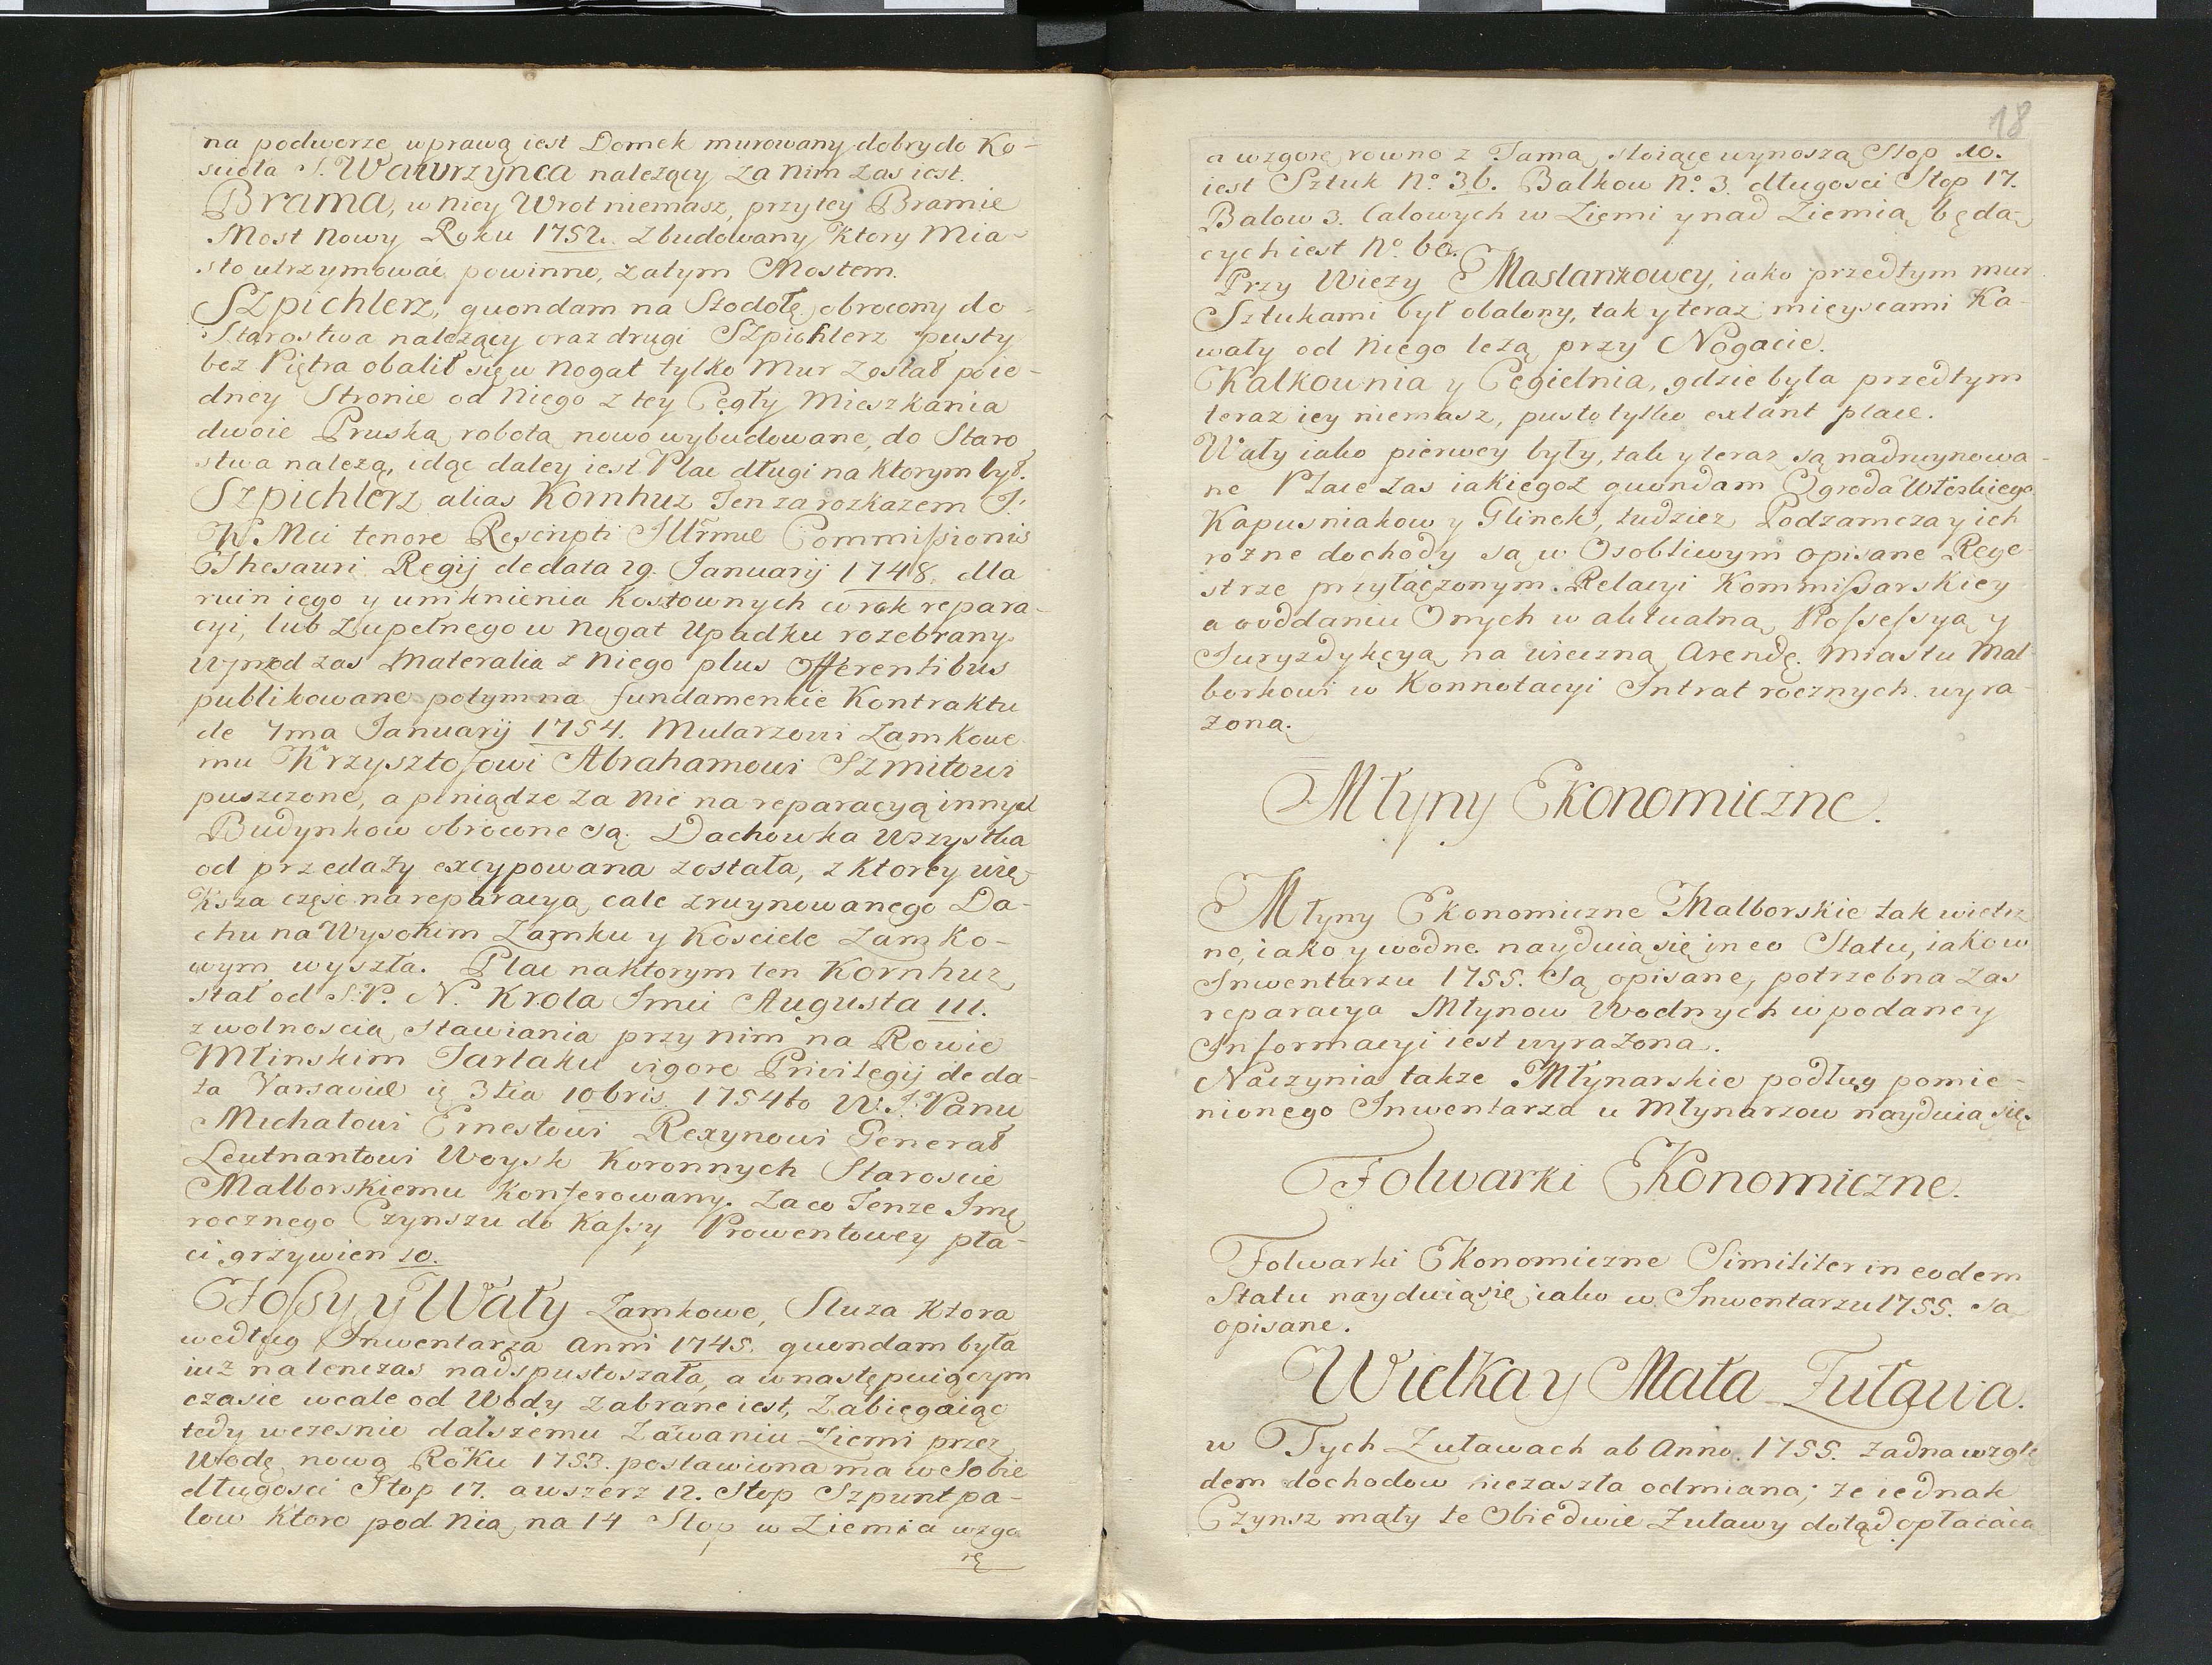 na podworze wprawą iest Domek murowany dobry do Ko-
scioła S. Wawrzynca nalezący za nim zas iest.
Brama, w niey Wrot niemasz, przytey Bramie
Most Nowy Roku 1752. Zbudowany Ktory Mia-
sto utrzymować powinno, zatym Mostem.
Szpichlerz, quondam na Stodołę obrocony do
Starostwa nalezący oraz drugi Szpichlerz pusty
bez Piętra obalił się w Nogat tylko Mur został po ie-
dney Stronie od Niego z tey Cegły Mieszkania
dwoie Pruską robotą nowo wybudowane, do Staro
stwa nalezą, idąc daley iest Plac długi na Ktorym był.
Szpichlerz alias Kornhuz Ten za rozkazem J:
K Mci tenore Rescripti Illrmæ Commissionis
Thesauri Regij de data 29. Januarij 1748. dla
ruin iego y uniknienia Kosztownych corok repara-
cyi, lub Zupełnego w Nogat Upadku rozebrany
wprzod zas Materalia z Niego plus Offerentibus
publikowane potym na fundamencie Kontraktu
de 7ma Januarij 1754. Mularzowi Zamkowe
mu Krzysztofowi Abrahamowi Szmitowi
puszczone, a piniądze za Nie na reparacyą innych
Budynkow obrocone są. Dachowka Wszystka
od przedaży excypowana została, z Ktorey wię-
Ksza częsc na reparacyą cale zruynowanego Da-
chu na Wysokim Zamku y Kosciele Zamko-
wym wyszła. Plac na ktorym ten Kornhuz
stał od S. P. N. Krola Jmci Augusta III.
z wolnoscią stawiania przy nim na Rowie
Młinskim Tartaku vigore Privilegij de da-
ta Varsaviæ 3tia 10bris 1754to W: J: Panu
Michałowi Ernestowi Rexynowi Generał
Leutnantowi Woysk Koronnych Staroscie
Malborskiemu Konferowany. Zaco Tenze Jmę
rocznego Czynszu do Kassy Prowentowey pła-
ci grzywien 10.
Fossy y Wały Zamkowe, Sluza Ktora
według Inwentarza Anni 1745. quondam była
iuż natenczas nadspustoszała, a w następuiącym
czasie wcale od Wody zabrane iest, Zabiegaiąc
tedy wczesnie dalszemu Zarwaniu Ziemi przez
Wodę nową Roku 1753. postawiona ma w Sobie
długosci Stop 17. a wszerz 12. Stop Szpunt pa-
low Ktore pod Nią na 14 Stop w Ziemi a wzgo
rę
18
a wzgorę rowno z Tamą stoiące wynoszą Stop 10.
iest Sztuk No. 36. Balkow No. 3. długosci Stop 17.
Balow 3. Calowych w Ziemi y nad Ziemią będą-
cych iest No. 60.
Przy Wiezy Maslankowey, iako przedtym mur
Sztukami był obalony, tak y teraz mieyscami Ka-
wały od Niego lezą przy Nogacie.
Kalkownia y Cegielnia, gdzie była przedtym
teraz iey niemasz, pusto tylko extant place.
Wały iako pierwey były, tak y teraz są nadruynowa-
ne Place zas iakiegoz quondam Ogroda Włoskiego
Kapusniakow y Glinek, tudziez Podzamcza y ich
rozne dochody są w Osobliwym opisane Rege-
strze przyłączonym Relacyi Kommissarskiey
a o oddaniu Onych w aktualną Possessyą y
Juryzdykcyą na wieczną Arendę Miastu Mal
borkowi w Konnotacyi Intrat rocznych wyra-
zona.
Młyny Ekonomiczne.
Młyny Ekonomiczne Malborskie tak wietrz
ne, iako y wodne nayduią się in eo Statu, iako w
Inwentarzu 1755. Są opisane, potrzebna zas
reparacya Młynow Wodnych w podaney
Informacyi iest wyrażona.
Naczynia takze Młynarskie podług pomie-
nionego Inwentarza u Młynarzow nayduią się.
Folwarki Ekonomiczne.
Folwarki Ekonomiczne Similiter in eodem
Statu nayduią się iako w Inwentarzu 1755. są
opisane.
Wielka y Mała Zuława.
w Tych Zuławach ab Anno. 1755. żadna wzglę
dem dochodow niezaszła odmiana; ze iednak
Czynsz mały te Obiedwie Zuławy dotąd opłacaią